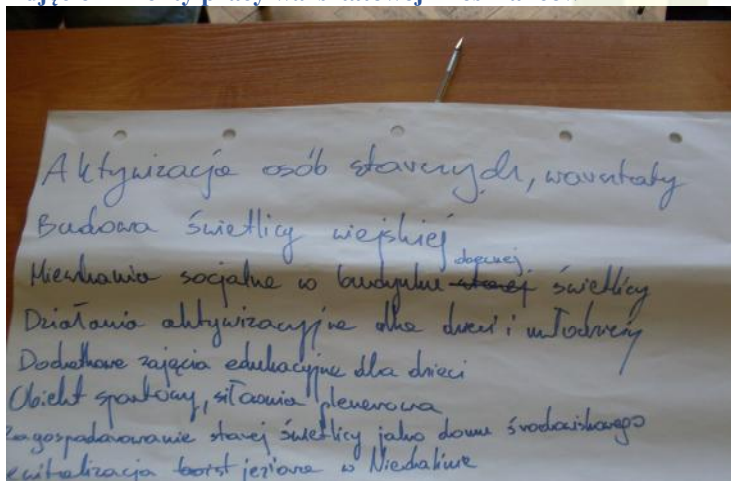 Aktywizacja osób starszych, warsztaty
Budowa świetlicy wiejskiej
obecnej
Mieszkania socjalne w budynku starej świetlicy
Działania aktywizacyjne dla dzieci i młodzieży
Dodatkowe zajęcia edukacyjne dla dzieci
Obiekt sportowy, siłownia plenerowa
Zagospodarowanie starej świetlicy jako domu środowiskowego
rewitalizacja jeziora w Niedalinie